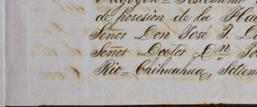 de posesion de la Hac
Señor Don Jose I. D
Señor Doctor Dn Jo
Rio = Chihuahua, Setiem